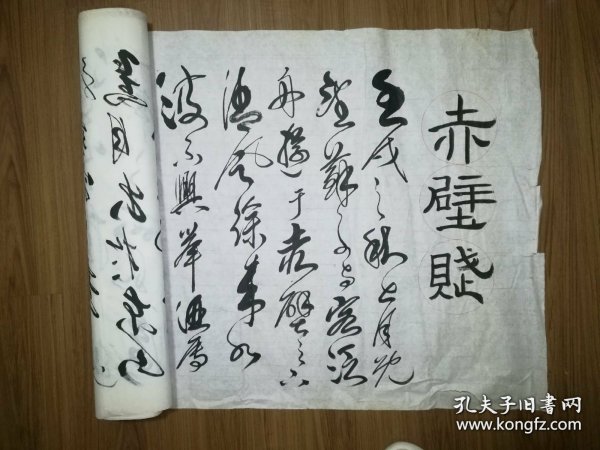 赤壁賦
壬戌之秋七月既
望蘇子与客泛
舟游于赤壁之下
清风徐来水
波不興举酒属
孔夫子旧书网
www.kongfz.com